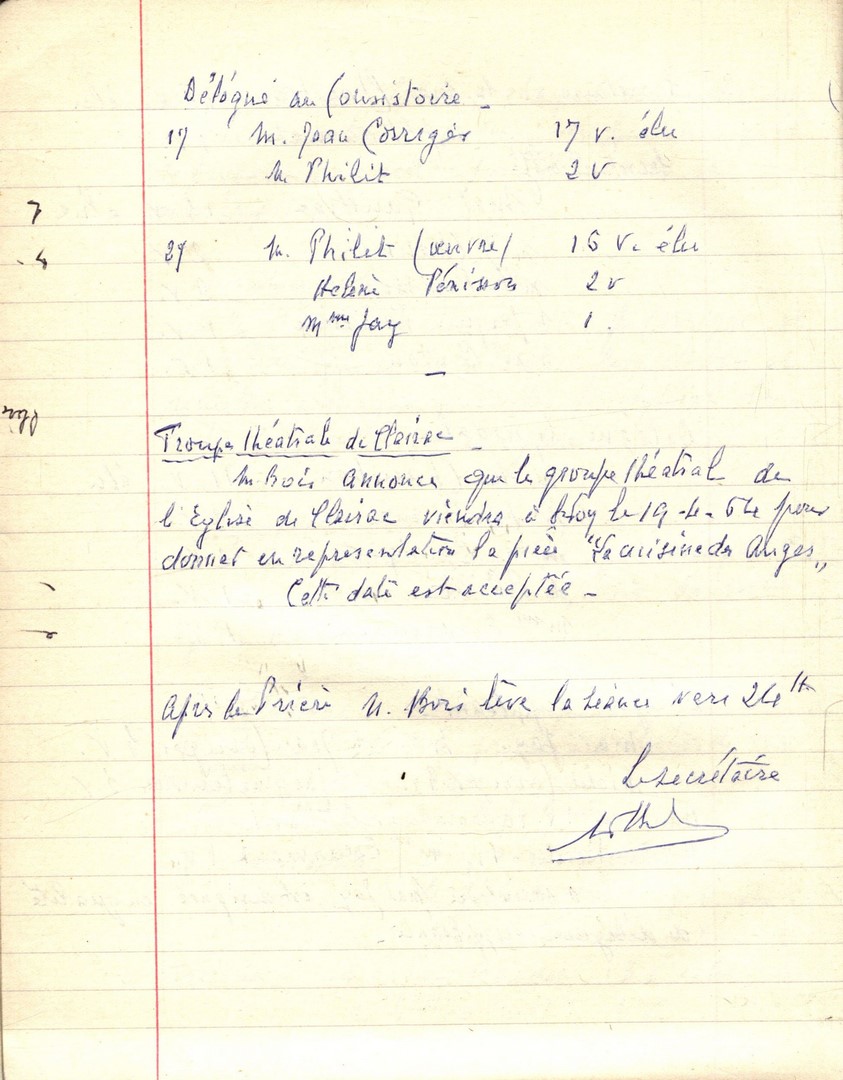 Délégué au Consistoire -
1) M. Jean Corriger 17 v. élu
M. Philit 2 v
2) M. Philit (œuvre) 16 v. élu
Helenè Pénisson 2 v
Mme Jay 1.
—
Troupe théatrale de Clairac -
M. Bois annonce que le groupe théatral de
l'Eglise de Clairac viendra à le 19-4-64 pour
donner en representation la piéce "La cuisine des Anges"
Cette date est acceptée -
Apres la Prière M. Bois lève la séance vers 24 H
Le secrétaire